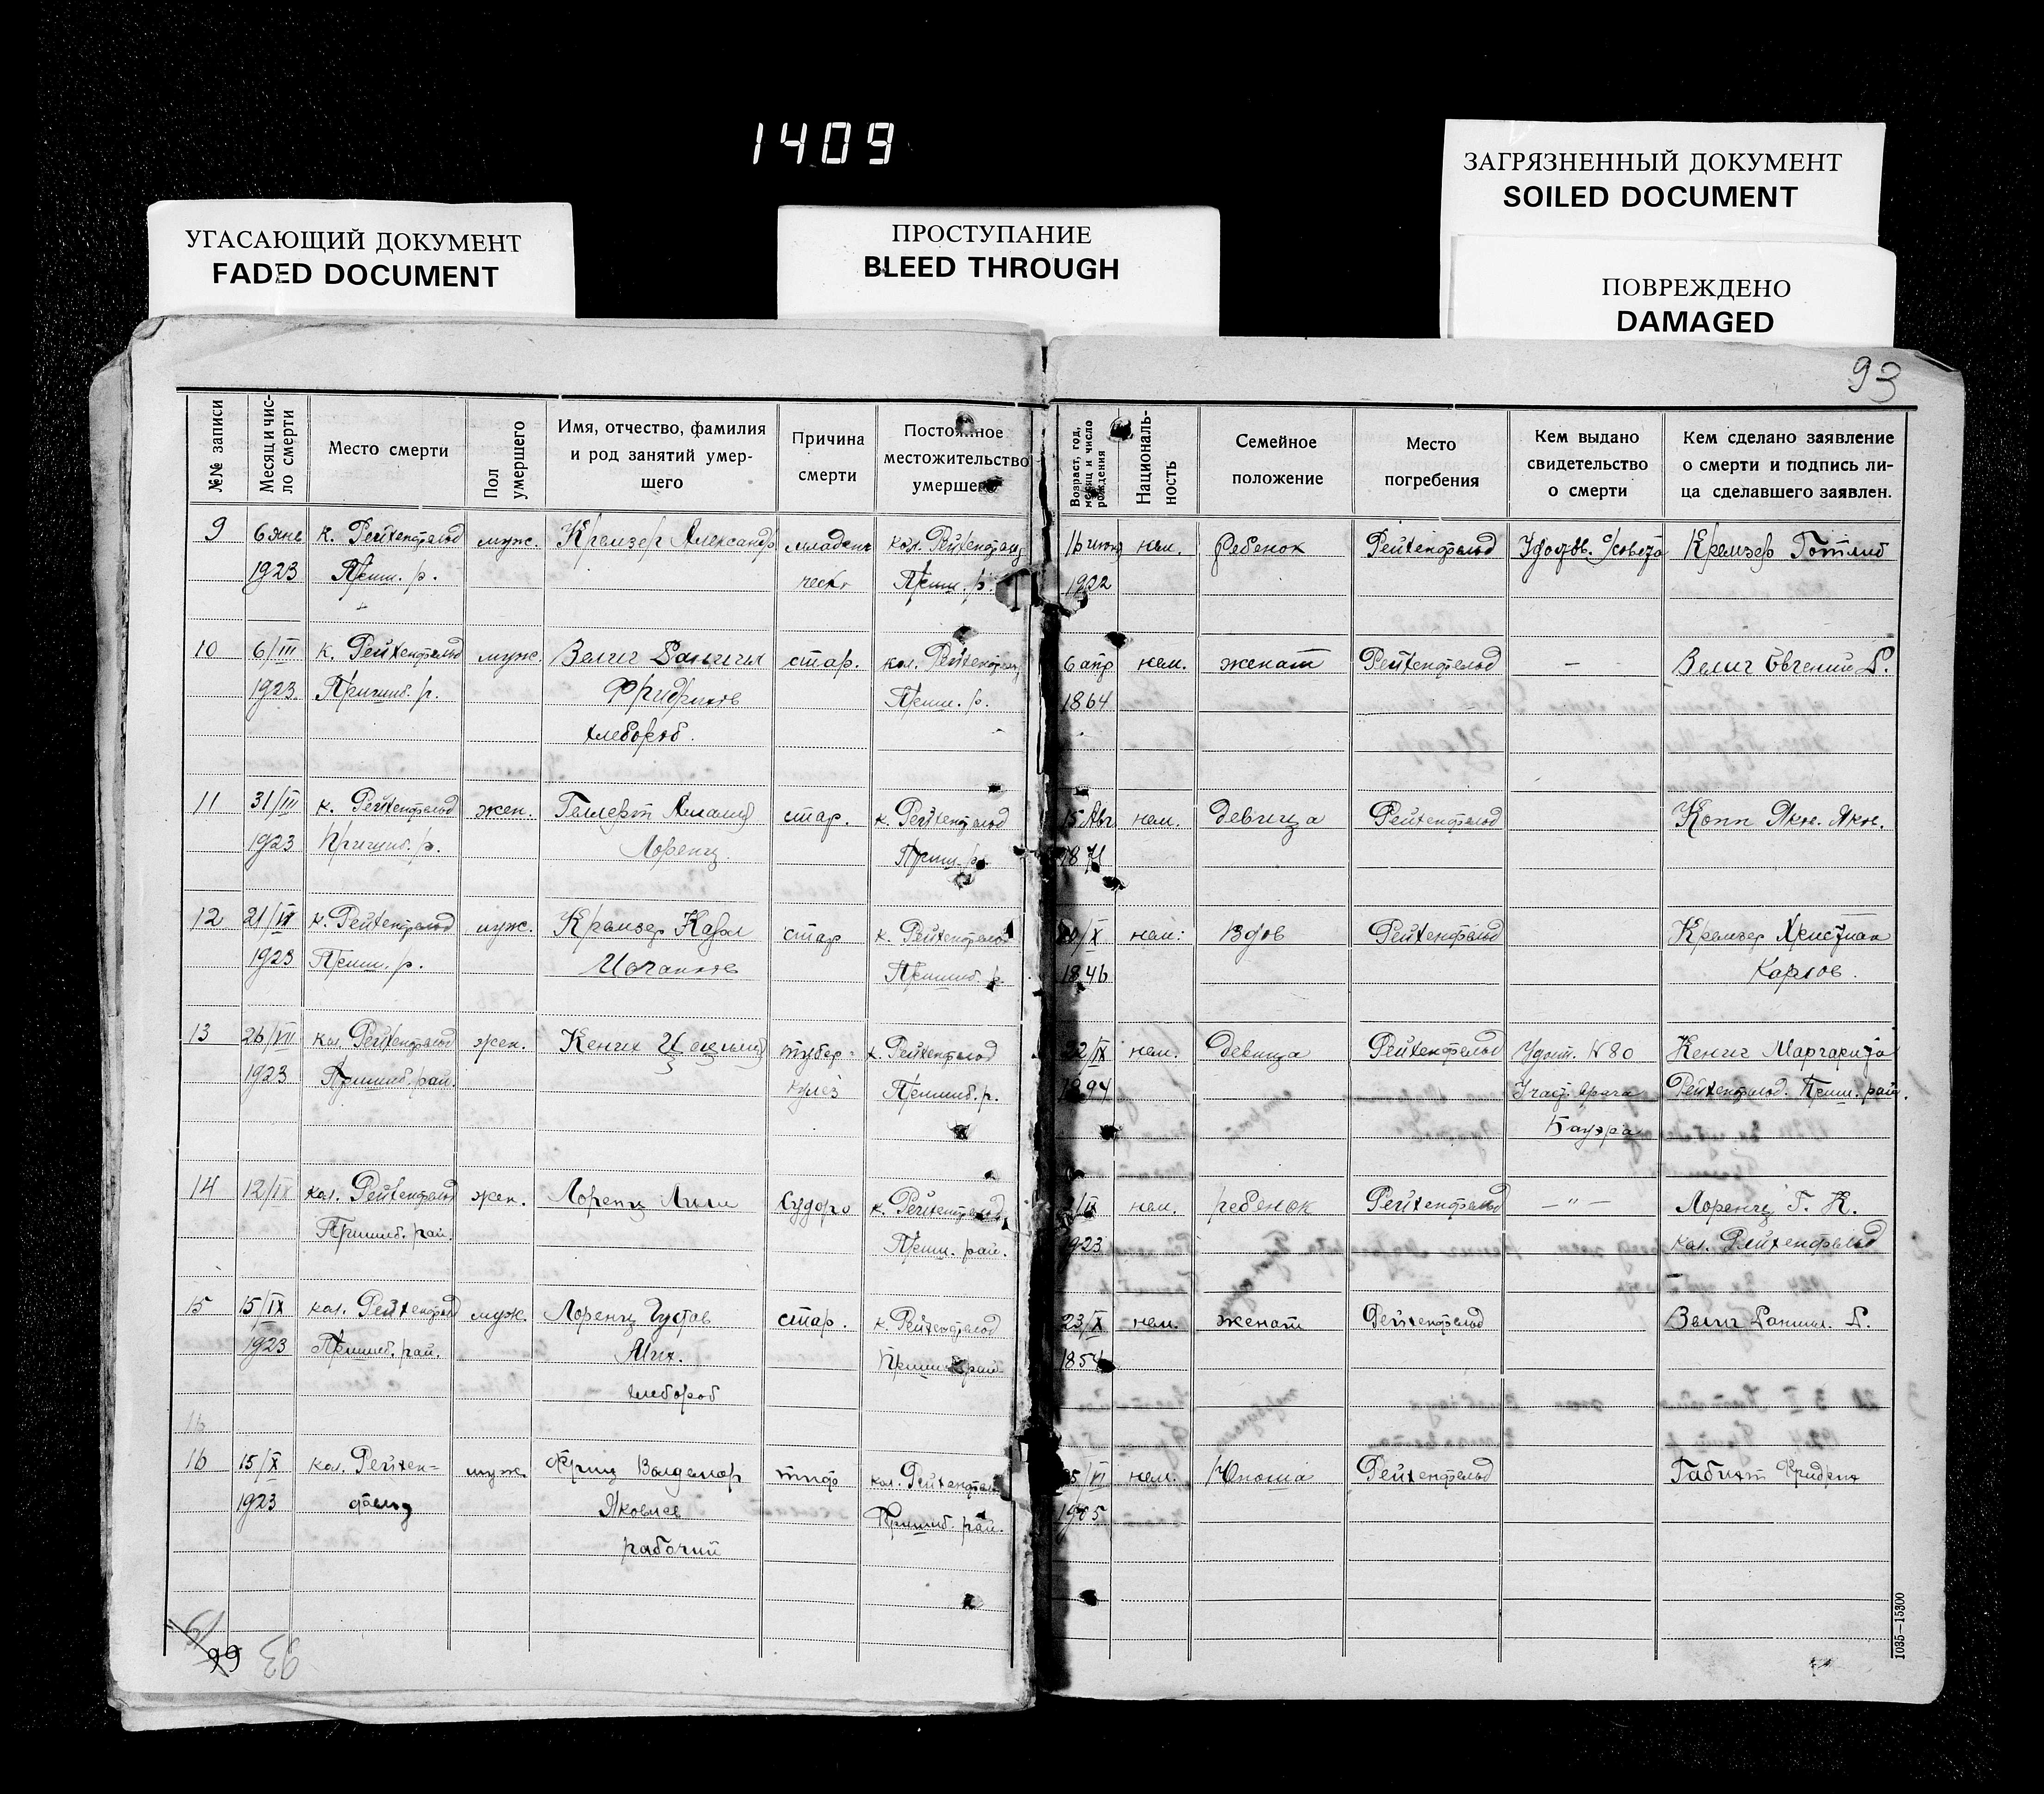 1409
УГАСАЮЩИЙ ДОКУМЕНТ
FADED DOCUMENT
ПРОСТУПАНИЕ
BLEED THROUGH
ЗАГРЯЗНЕННЫЙ ДОКУМЕНТ
SOILED DOCUMENT
ПОВРЕЖДЕНО
DAMAGED
93
№№ записи
Месяц и чис-
ло смерти
Место смерти
Пол
умершего
Имя, отчество, фамилия
и род занятий умер-
шего
Причина
смерти
Постоянное
местожительство
умершего
Возраст, год,
месяц и число
рождения
Националь-
ность
Семейное
положение
Место
погребения
Кем выдано
свидетельство
о смерти
Кем сделано заявление
о смерти и подпись ли-
ца сделавшего заявлен.
9 6 янв к. Рейхенфельд муж. Кремзер Александр младен кол. Рейхенфельд нем. ребенок Рейхенфельд Удост. с/совета Кремзер Готлиб
1923 Приш. р. ческ. Приш. р. 1922
10 6/III к. Рейхенфельд муж. Велиг стар. кол. Рейхенфельд 6 апр нем. женат Рейхенфельд — Велиг Евгений Д.
1923 Пришиб. р. Фридрихов Приш. р. 1864
хлебороб.
11 31/III к. Рейхенфельд жен. Геллерт стар. к. Рейхенфельд 15 Авг нем. девица Рейхенфельд Копп Як. Як.
1923 Пришиб. р. Лоренц Приш. р. 1871
12 21/IV к. Рейхенфельд муж. Кремзер Карл стар к. Рейхенфельд 20/X нем. вдов Рейхенфельд Кремзер Христиан
1923 Приш. р. Пришиб. р. 1846 Карлов.
13 26/VII кол. Рейхенфельд жен. Кениг тубер- к. Рейхенфельд 22/IX нем. девица Рейхенфельд Удост. N 80 Кениг Маргарита
1923 Пришиб. рай. кулез Пришиб. р. 1894 Участ. врача Рейхенфельд. Приш. рай.
Бауэра
14 12/IX кол. Рейхенфельд жен. Лоренц Лили Судоро к. Рейхенфельд /IX нем. ребенок Рейхенфельд — " — Лоренц Г. К.
Пришиб. рай. Приш. рай. 1923 кол. Рейхенфельд
15 15/IX кол. Рейхенфельд муж. Лоренц Густав стар. к. Рейхенфельд 23/X нем. женат Рейхенфельд Велиг Даниил. Д.
1923 Пришиб. рай. Мих. Пришиб рай 1854
хлебороб
16
16 15/X кол. Рейхен- муж. Фриц Вальдемар тиф кол. Рейхенфельд /VI нем. Юноша Рейхенфельд Габихт Фридрих
1923 фельд Яковлев Пришиб. рай. 1905
рабочий
99 93
1035—15300